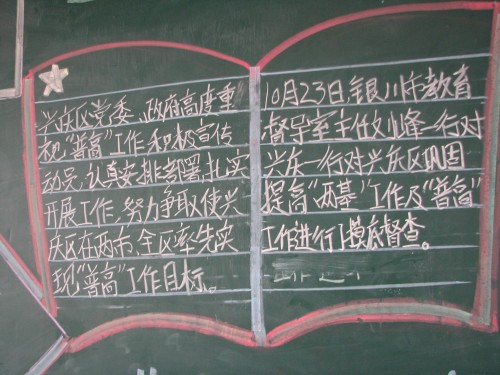 兴庆区党委、政府高度重
视"普高"工作和积极宣传
动员，认真安排部署，扎实
开展工作，努力争取使兴
庆区在两市全区率先实
现"普高"工作目标。
10月23日，银川市教育
督导室主任刘峰一行对
兴庆一行对兴庆区巩固
提高"两基"工作及"普高"
工作进行摸底督查。